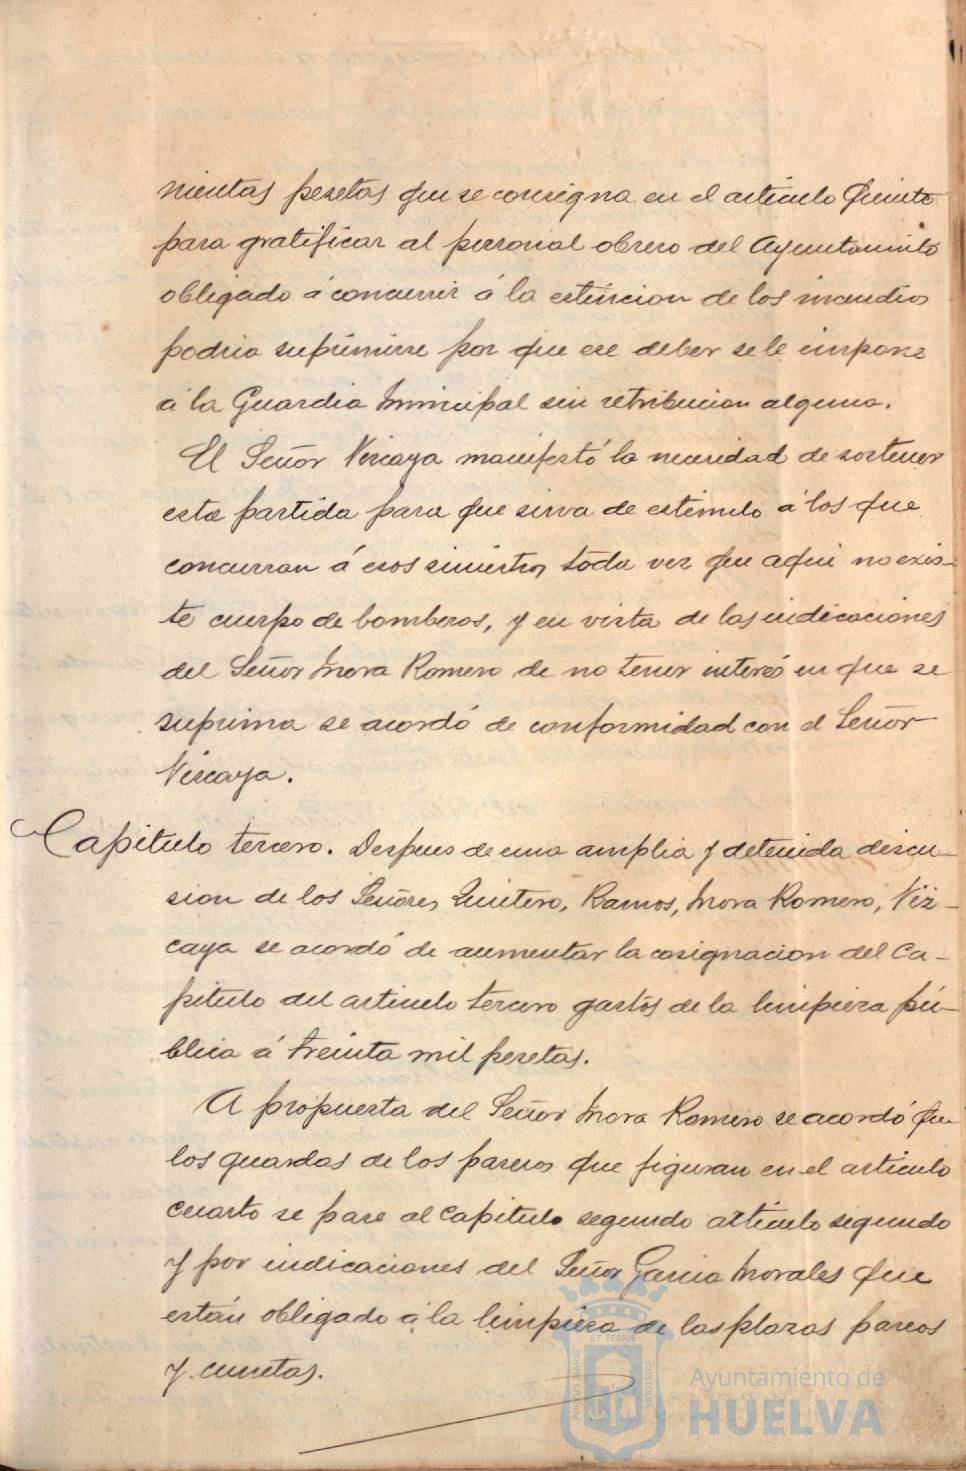 nientas pesetas que se consigna en el articulo Quinto
para gratificar al personal obrero del Ayuntamiento
obligado á concurrir á la estincion de los incendios
podria suprimirse por que ese deber se le impone
á la Guardia Municipal sin retribucion alguna.
El Señor Vizcaya manifestó la necesidad de sostener
esta partida para que sirva de estimulo á los que
concurran á esos siniestros toda vez que aqui no exis-
te cuerpo de bomberos, y en vista de las indicaciones
del Señor Mora Romero de no tener interés en que se
suprima se acordó de conformidad con el Señor
Vizcaya.
Capitulo tercero. Despues de una amplia y detenida discu-
sion de los Señores Quintero, Ramos, Mora Romero, Viz-
caya se acordó de aumentar la cosignacion del Ca-
pitulo del articulo tercero gastos de la limpieza pú-
blica á treinta mil pesetas.
A propuesta del Señor Mora Romero se acordó que
los guardas de los paseos que figuran en el articulo
cuarto se pase al capitulo segundo articulo segundo
y por indicaciones del Señor Garcia Morales que
están obligado á la limpieza de las plazas paseos
y cunetas.
PORTUS MARIS ET TERRÆ CUSTODIA
Ayuntamiento de
HUELVA